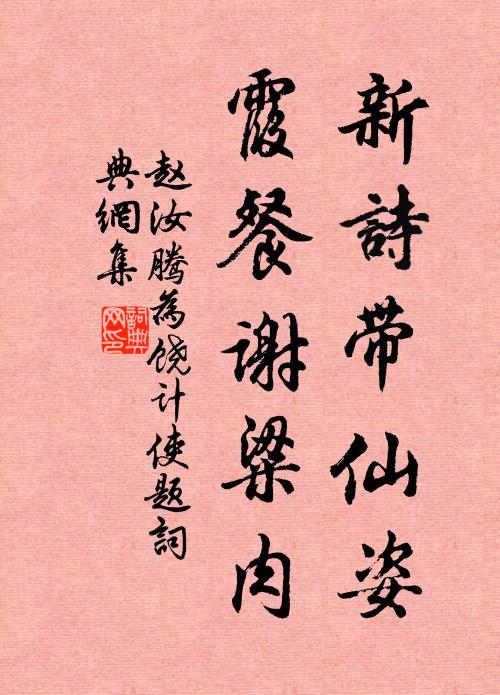 新詩帶仙姿
霞餐谢粱肉
赵汝腾為饶计使题詞
典網集
詞典网印